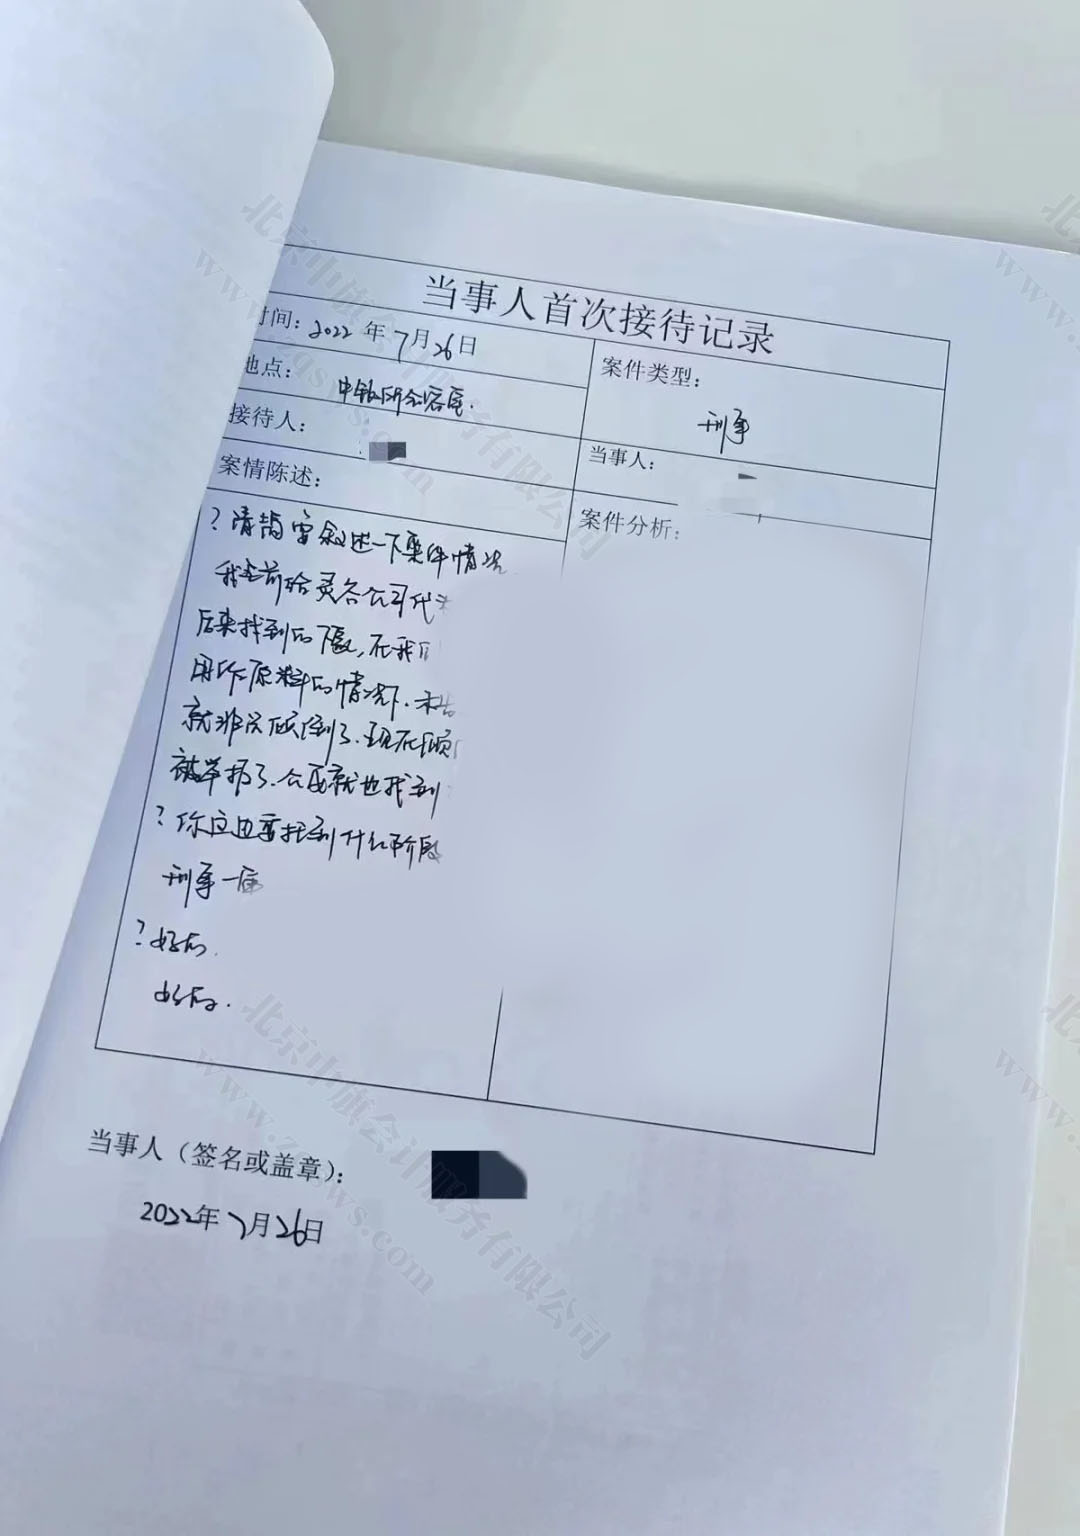 当事人首次接待记录
时间：2022年7月26日
案件类型：
刑事
地点：
中银所会客室.
接待人：
当事人：
案情陈述：
案件分析：
?请简要叙述一下案件情况
我之前给
公司代
后来找到的下家,在我们
用作原料的情况下.未告
就非法倾倒了.现在倾
被举报了.公安就也找到
?你应也委托到什么阶段
刑事一审
?好的.
好的.
当事人（签名或盖章）：
2022年7月26日
北京中旗会计服务有限公司
www.zqsws.com